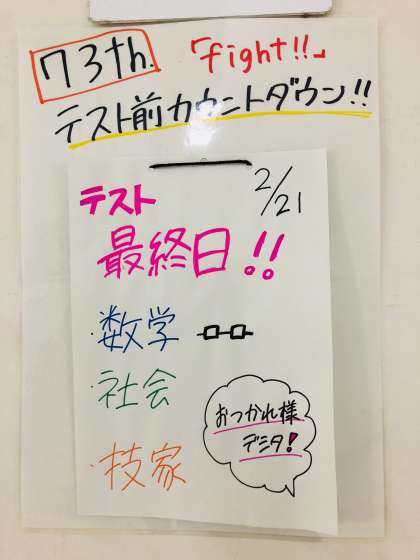 73th. 「fight!!」
テスト前カウントダウン!!
テスト 2/21
最終日!!
・数学
・社会
・技家
おつかれ様
デミタ!